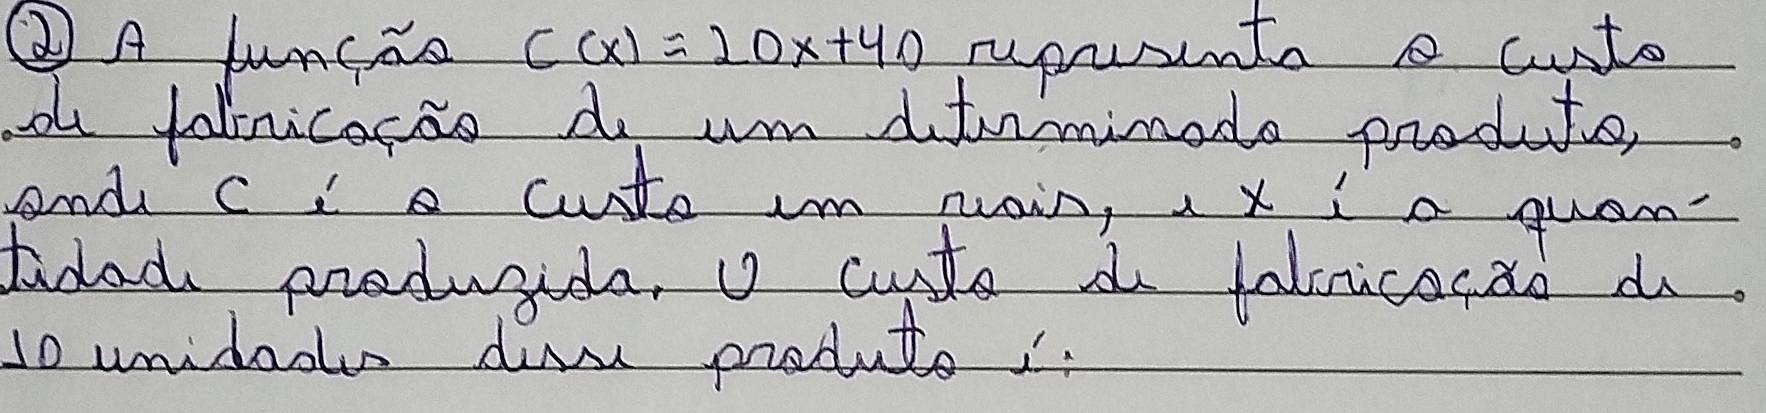 ② A função C(x)=20x+40 representa o custo
de fabricação de um determinado produto,
onde C é o custo em reais, e x é a quan-
tidade produzida. O custo de fabricação de
10 unidades desse produto é: